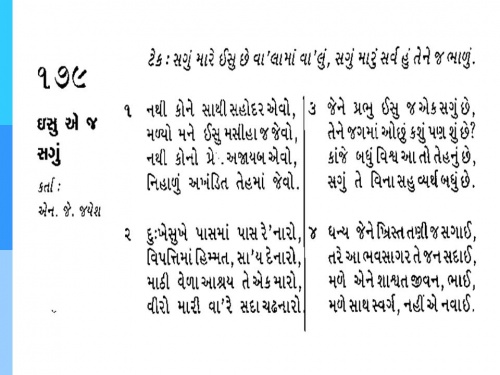 ૧૭૯
ઇસુ એ જ
સગું
કર્તા :
એન. જે. જયેશ
ટેક : સગું મારે ઈસુ છે વા'લામાં વા'લું, સગું મારું સર્વ હું તેને જ ભાળું.
૧ નથી કોને સાથી સહોદર એવો,
મળ્યો મને ઈસુ મસીહા જ જેવો,
નથી કોનો પ્રે અજાયબ એવો,
નિહાળું અખંડિત તેહમાં જેવો.
૨ દુઃખેસુખે પાસમાં પાસ રે'નારો,
વિપત્તિમાં હિમ્મત, સા'ય દેનારો,
માઠી વેળા આશ્રય તે એક મારો,
વીરો મારી વા'રે સદા ચઢનારો.
૩ જેને પ્રભુ ઈસુ જ એક સગું છે,
તેને જગમાં ઓછું કશું પણ શું છે?
કાંજે બધું વિશ્વ આ તો તેહનું છે,
સગું તે વિના સહુ વ્યર્થ બધું છે.
૪ ધન્ય જેને ખ્રિસ્ત તણી જ સગાઈ,
તરે આ ભવસાગર તે જન સદાઈ,
મળે એને શાશ્વત જીવન, ભાઈ,
મળે સાથ સ્વર્ગ, નહીં એ નવાઈ.